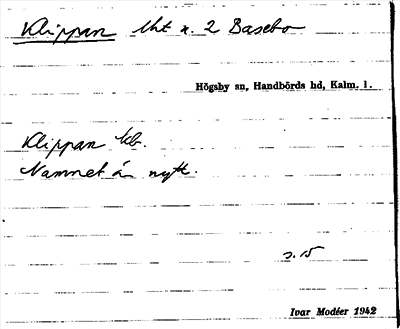 Klippan lht n. 2 Basebo
Högsby sn, Handbörds hd, Kalm. l.
Klippan lb.
Namnet är nytt.
s. 15
Ivar Modéer 1942